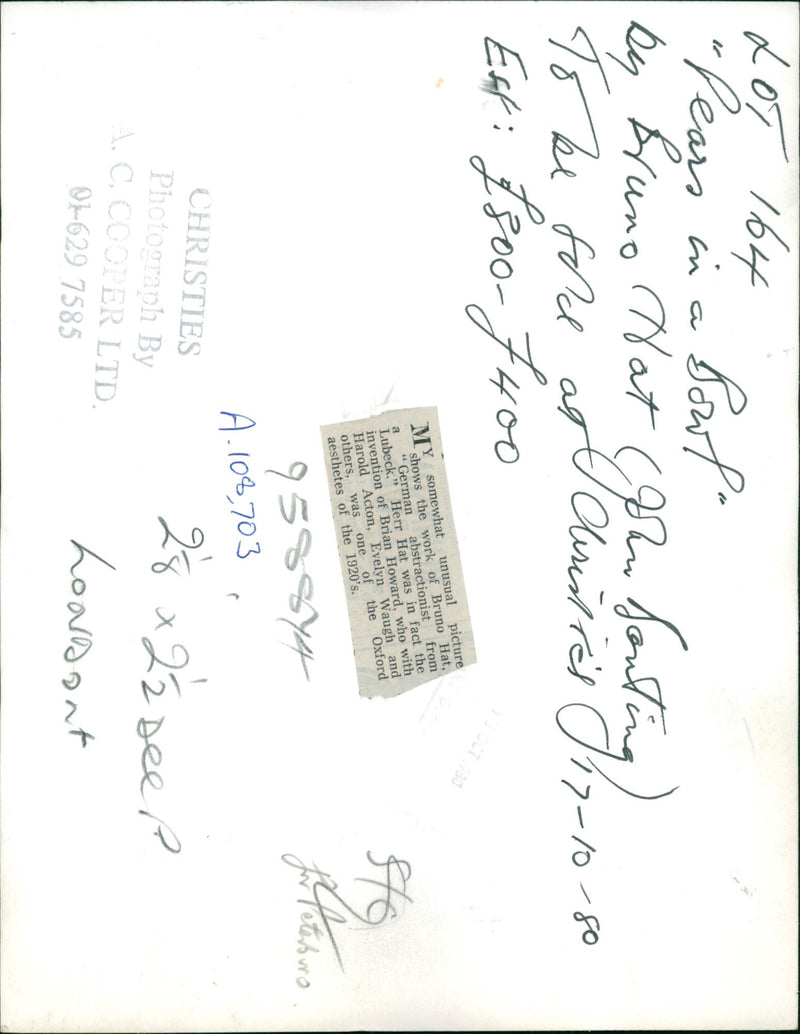 LOT 164
"Pears in a Bowl"
by Bruno Hat (John Banting)
To be sold at Christie's 17-10-80
Est: £300-£400
MY somewhat unusual picture
shows the work of Bruno Hat,
a "German abstractionist from
Lubeck." Herr Hat was in fact the
invention of Brian Howard, who with
Harold Acton, Evelyn Waugh and
others, was one of the Oxford
aesthetes of the 1920's.
CHRISTIES
Photograph By
A. C. COOPER LTD.
01-629 7585
A.108,703
2⅛ x 2½ Deep
Peterboro
OCT